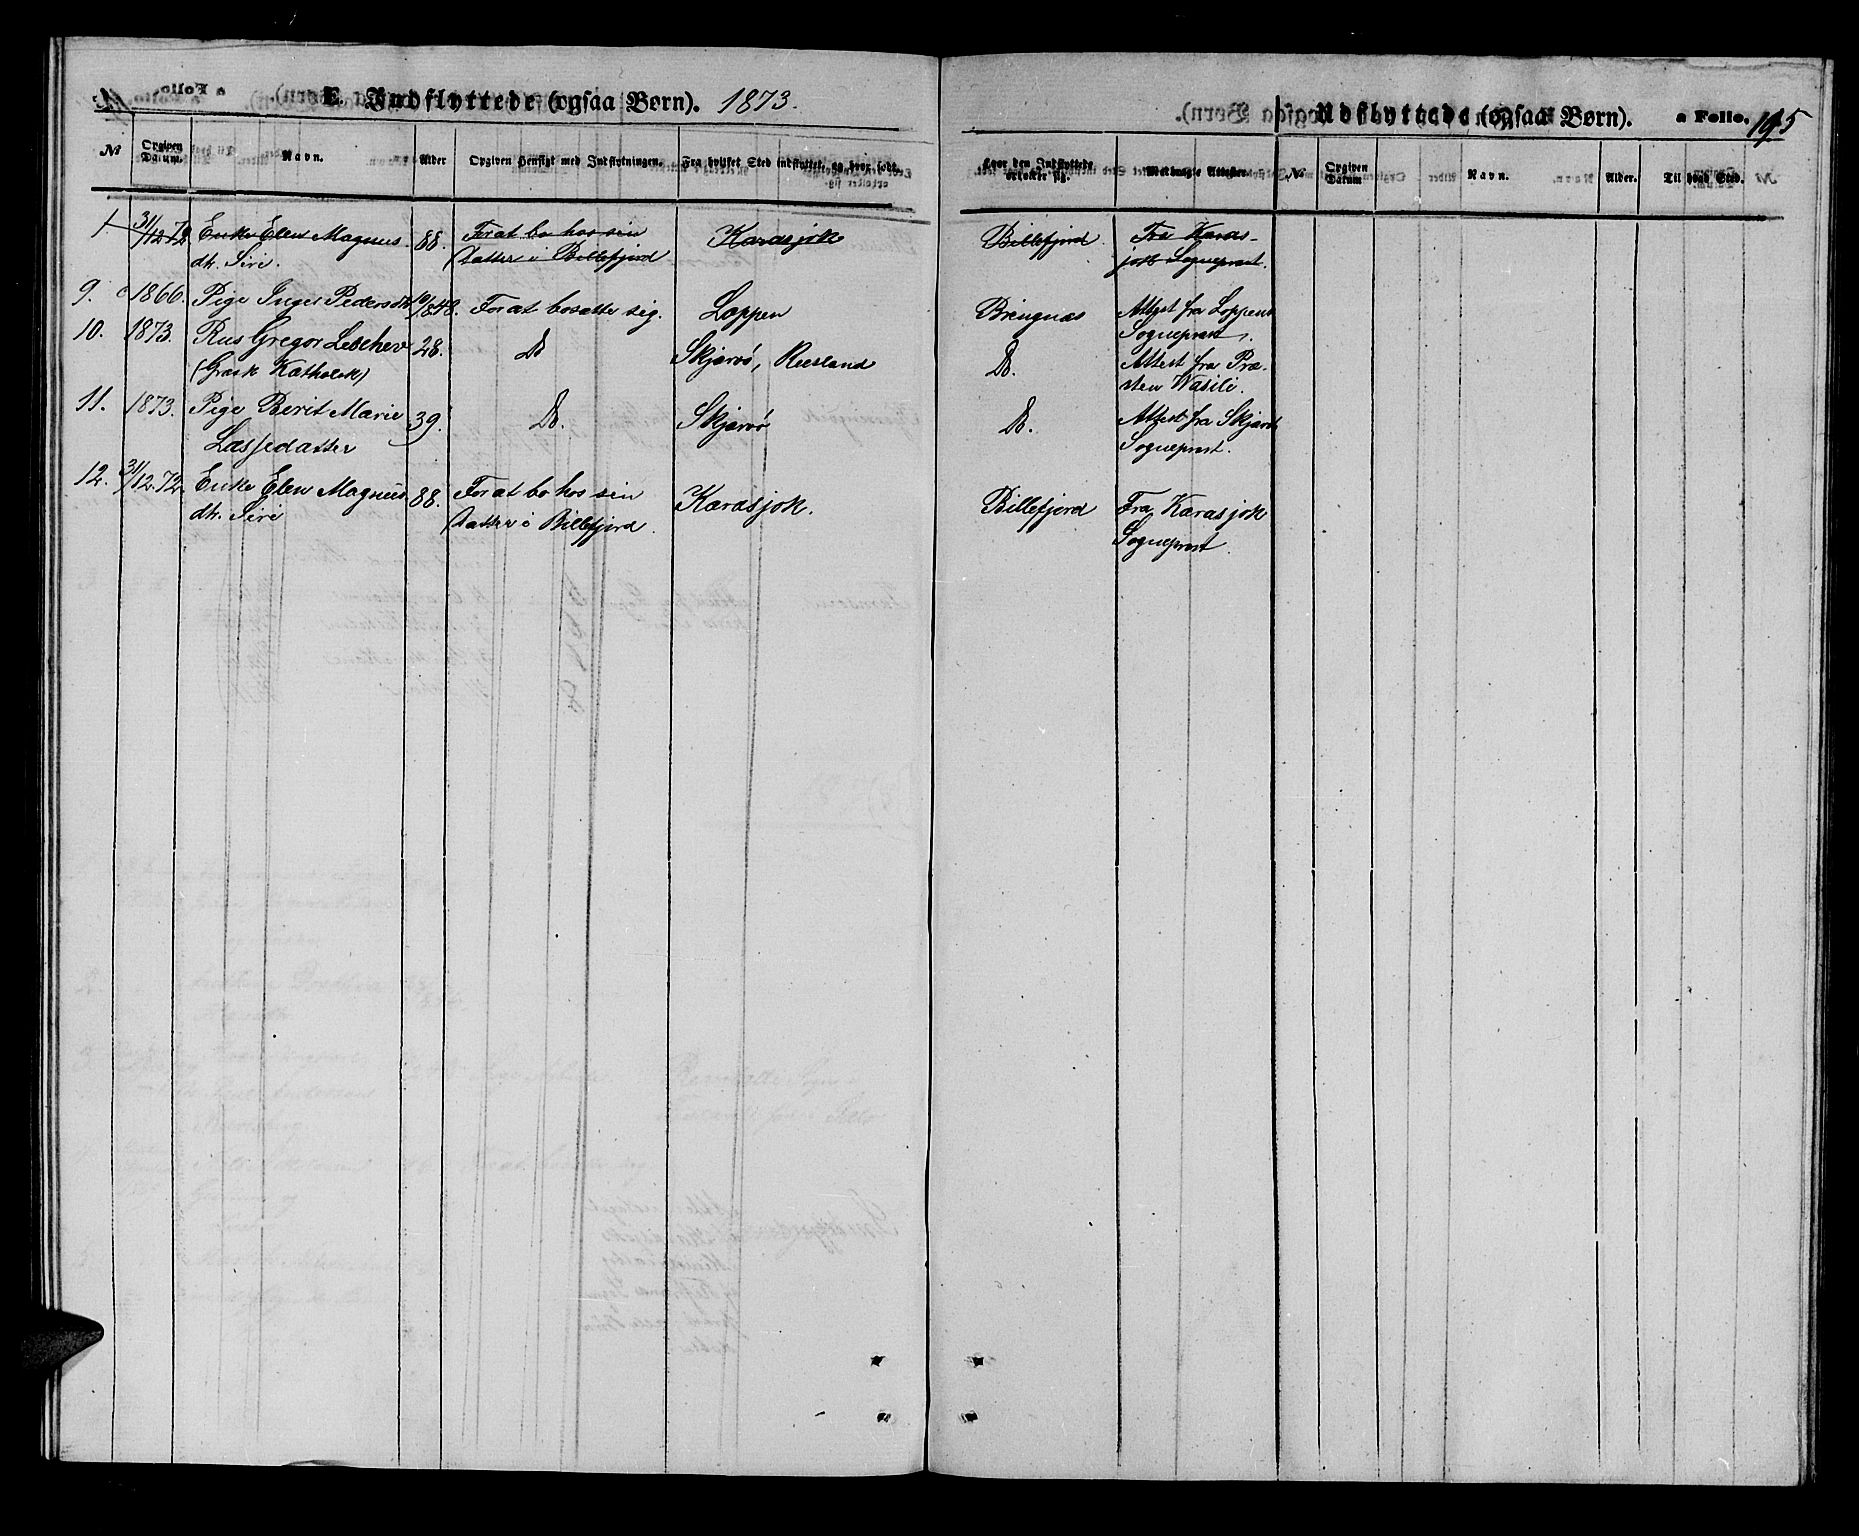 E. Indflyttede (ogsaa Børn). 1873.
Udflyttede (ogsaa Børn). a Folio. 195
No
Opgiven Datum.
Navn.
Alder
Opgiven Hensigt med Indflytningen.
Fra hvilket Sted indflyttet, og hvor født.
hvor den Indflyttede
opholder sig.
Medbragte Attester
No
Opgiven Datum
Navn.
Alder.
Til hvad Sted.
1 31/12 72 Enke Elen Magnus 88. For at bo hos sin Karasjok Billefjord Fra Karas-
dtr. Siri. Datter i Billefjord jok Sogneprest.
9. 1866. Pige Inger Pedersdtr For at bosætte sig. Loppen Brengnæs Attest fra Loppens
Sogneprest.
10. 1873. Rus Gregor Lebehev 28. Do Skjærvø, Rusland Do. Attest fra Præ-
(Græsk Katholik) sten Wasili.
11. 1873. Pige Berit Marie 39. Do. Skjærvø Do. Attest fra Skjærvø
Lassedatter Sogneprest.
12. 31/12. 72. Enke Elen Magnus 88. For at bo hos sin Karasjok. Billefjord Fra Karasjok
dtr. Siri Datter i Billefjord. Sogneprest.